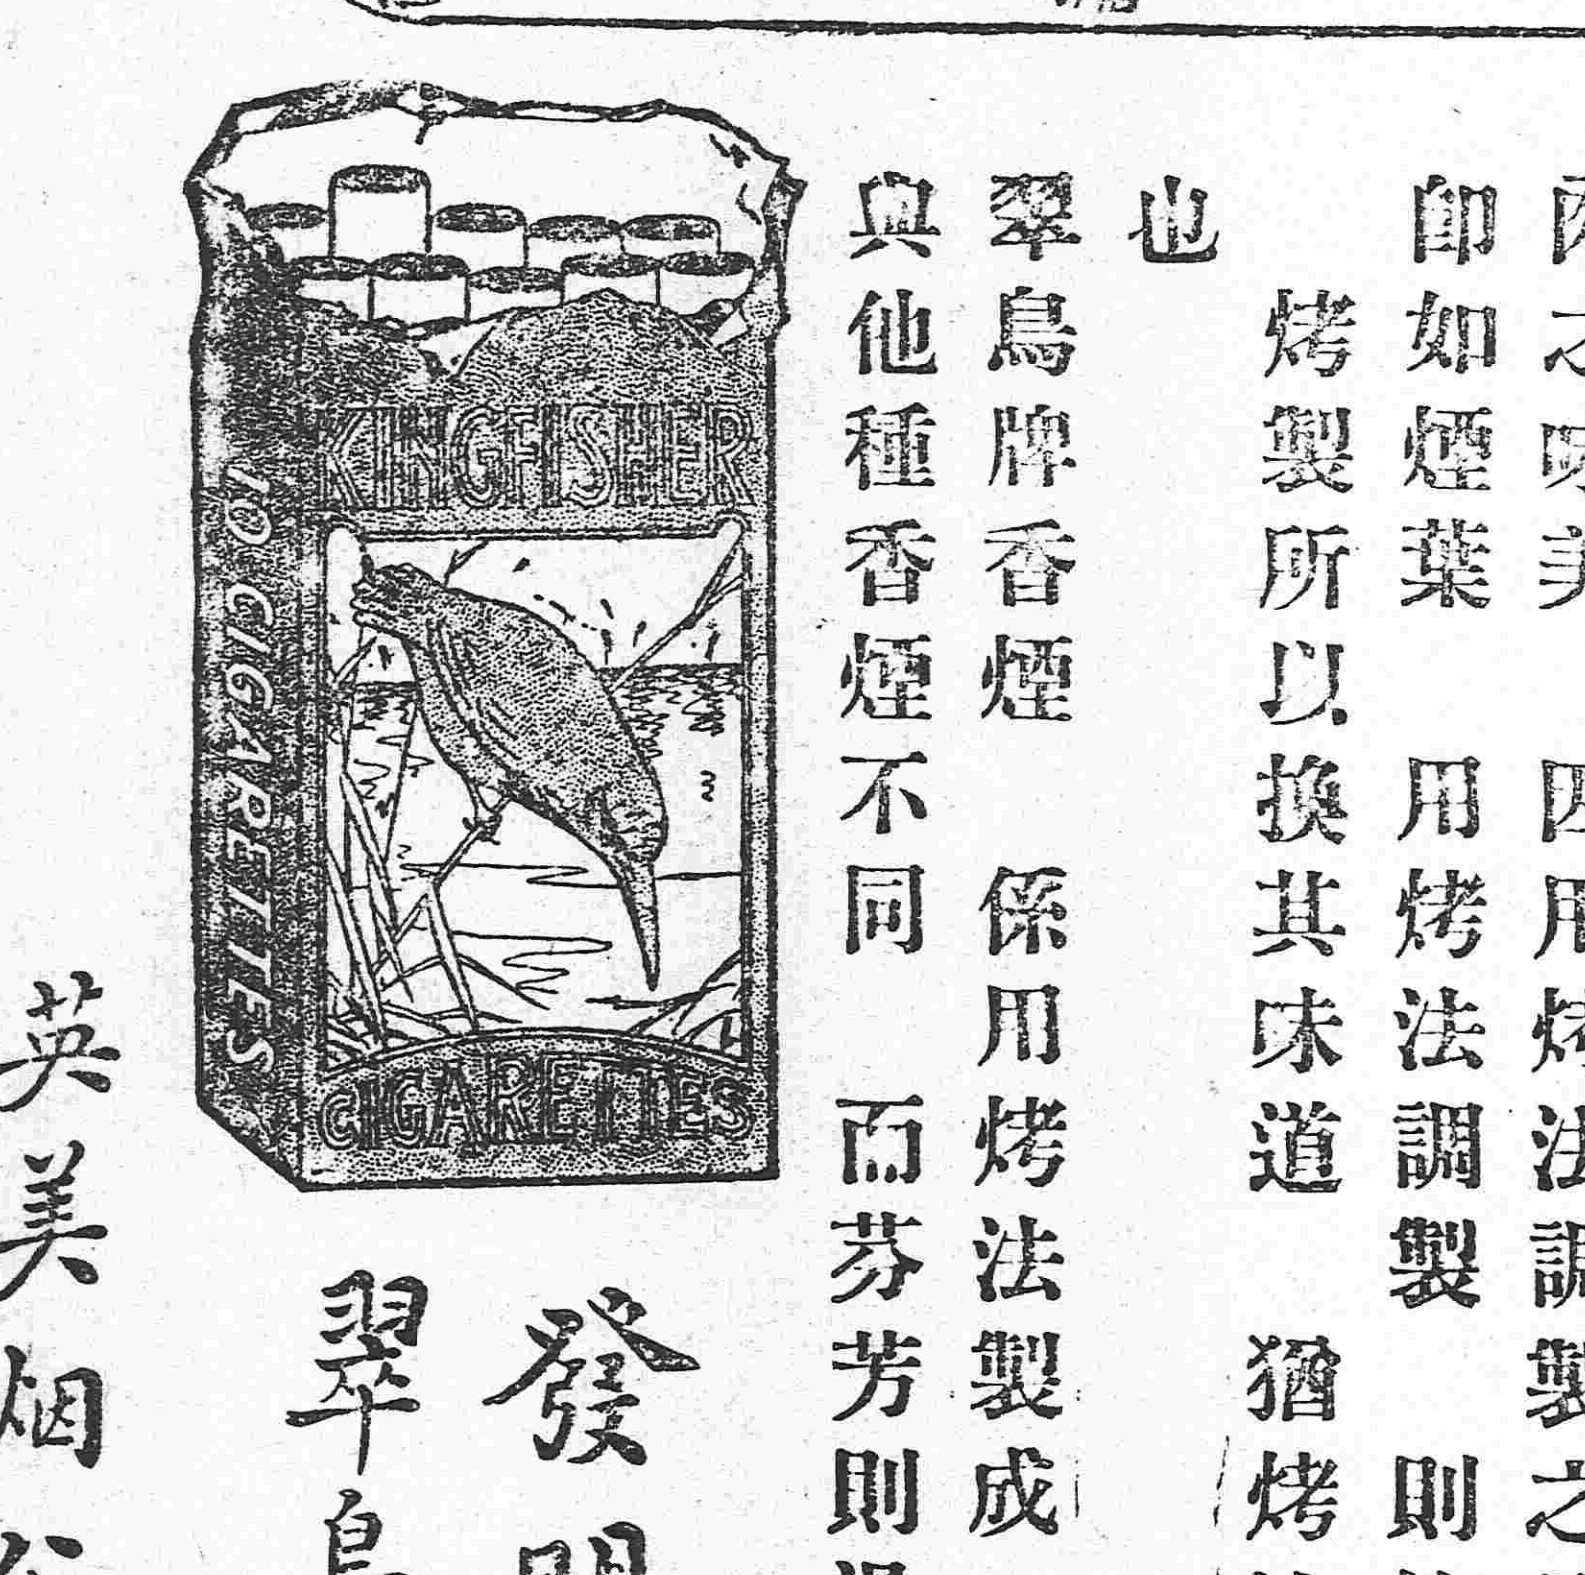 之味美 四用烤法調製之
即如煙葉 用烤法調製 則
烤製所以換其味道 猶烤
也
翠鳥牌香煙 係用烤法製成
與他種香煙不同 而芬芳則
KINGFISHER
CIGARETTES
10 CIGARETTES
發明
翠鳥
英美烟公